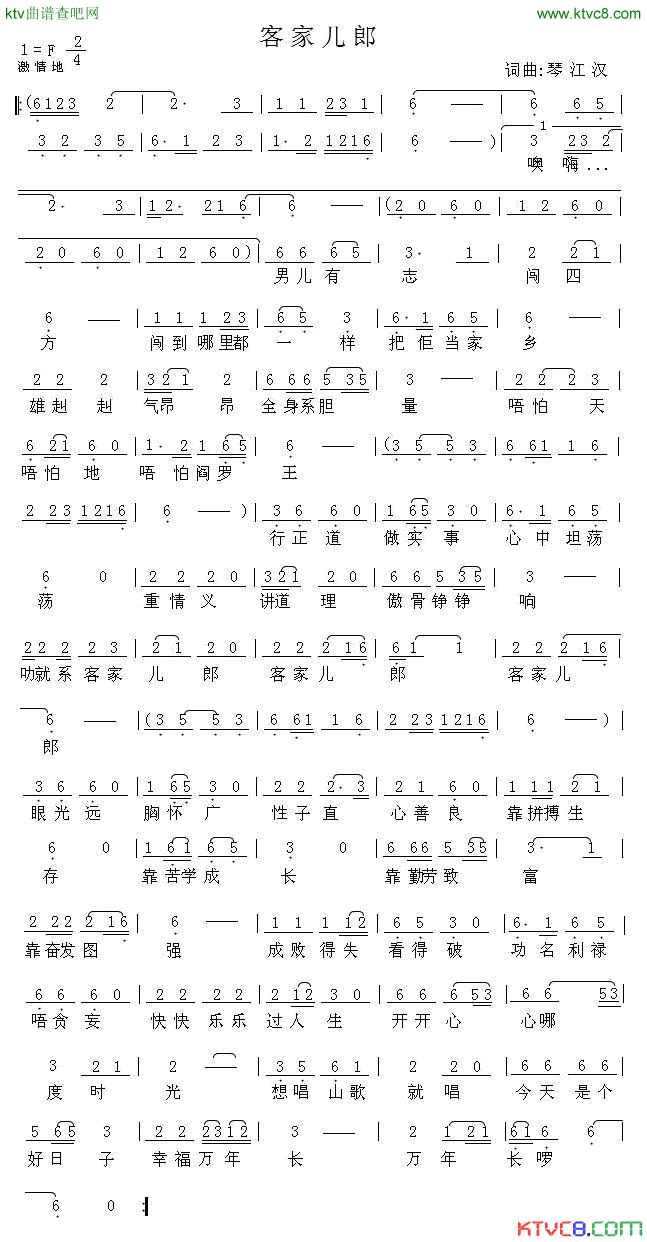 ktv曲谱查吧网 www.ktvc8.com
客家儿郎
1=F 2/4
激情地 词曲:琴江汉
‖:(6123 2 | 2· 3 | 1 1 23 1 | 6 — | 6 6 5 |
3 2 3 5 | 6· 1 2 3 | 1· 2 1216 | 6 — ) | 1 3 23 2 |
噢 嗨...
2· 3 | 12· 21 6 | 6 — | (2 0 6 0 | 1 2 6 0 |
2 0 6 0 | 1 2 6 0) | 6 6 6 5 | 3· 1 | 2 2 1 |
男儿有 志 闯 四
6 — | 1 1 1 23 | 6 5 3 | 6· 1 6 5 | 6 — |
方 闯到哪里都 一 样 把佢当家 乡
2 2 2 | 32 1 2 | 6 66 5 35 | 2 — | 2 2 2 3 |
雄赳 赳 气昂 昂 全身系胆 量 唔怕 天
6 21 6 0 | 1· 2 1 65 | 6 — | (3 5 5 3 | 6 61 1 6 |
唔怕地 唔怕阎罗 王
2 23 1216 | 6 — ) | 3 6 6 0 | 1 65 3 0 | 6· 1 6 5 |
行正道 做实事 心中坦荡
6 0 | 2 2 2 0 | 32 1 2 0 | 6 6 5 35 | 3 — |
荡 重情义 讲道 理 傲骨铮铮 响
22 2 2 3 | 2 1 2 0 | 2 3 2 16 | 6 1 1 | 2 2 2 16 |
叻就系客家 儿 郎 客家儿 郎 客家儿
6 — | (3 5 5 3 | 6 61 1 6 | 2 23 1216 | 6 — ) |
郎
3 6 6 0 | 1 65 3 0 | 2 2 2· 3 | 2 1 6 0 | 1 11 2 1 |
眼光远 胸怀广 性子直 心善良 靠拼搏生
6 0 | 1 61 6 5 | 3 0 | 6 66 5 35 | 3· 1 |
存 靠苦学成 长 靠勤劳致 富
2 22 2 16 | 6 — | 1 1 1 12 | 6 5 3 0 | 6· 1 6 5 |
靠奋发图 强 成败得失 看得破 功名利禄
6 6 6 0 | 2 2 2 2 | 2 12 3 0 | 6 6 6 53 | 6 6 53 |
唔贪妄 快快乐乐 过人生 开开心 心哪
3 2 1 | 2 — | 3 5 6 1 | 2 2 0 | 6 6 6 1 |
度时 光 想唱山歌 就唱 今天是个
5 65 3 | 2 2 2312 | 3 — | 2 1 21 | 61 6 6 |
好日 子 幸福万年 长 万年 长啰
6 0 :‖
KTVC8.com
www.ktvc8.com